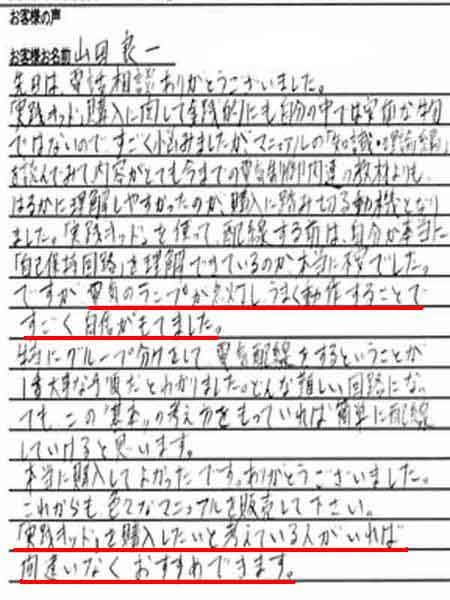 お客様の声
お客様お名前 山田 良一
先日は、電話相談ありがとうございました。
「実践キッド」購入に関して金銭的にも自分の中では安価な物
ではないので、すごく悩みましたが、マニュアルの「知識・理論編」
を読んでみて内容がとても今までの電気制御関連の教材よりも、
はるかに理解しやすかったのが、購入に踏み切る動機となり
ました。「実践キッド」を使って、配線する前は、自分が本当に
「自己保持回路」を理解できているのか、本当に不安でした。
ですが電気のランプが点灯し、うまく動作することで
すごく自信がもてました。
特にグループ分けをして電気配線をするということが
1番大事な手順だとわかりました。どんな難しい回路にな
っても、この"基本"の考え方をもっていれば簡単に配線
していけると思います。
本当に購入してよかったです。ありがとうございました。
これからも、色々なマニュアルを販売して下さい。
「実践キッド」を購入したいと考えている人がいれば
間違いなくおすすめできます。